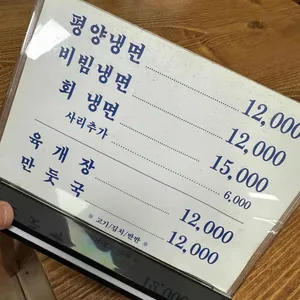 평양냉면 12,000
비빔냉면 12,000
회 냉면 15,000
사리추가 6,000
육개장 12,000
만둣국 12,000
※ 고기/김치/반반 ※